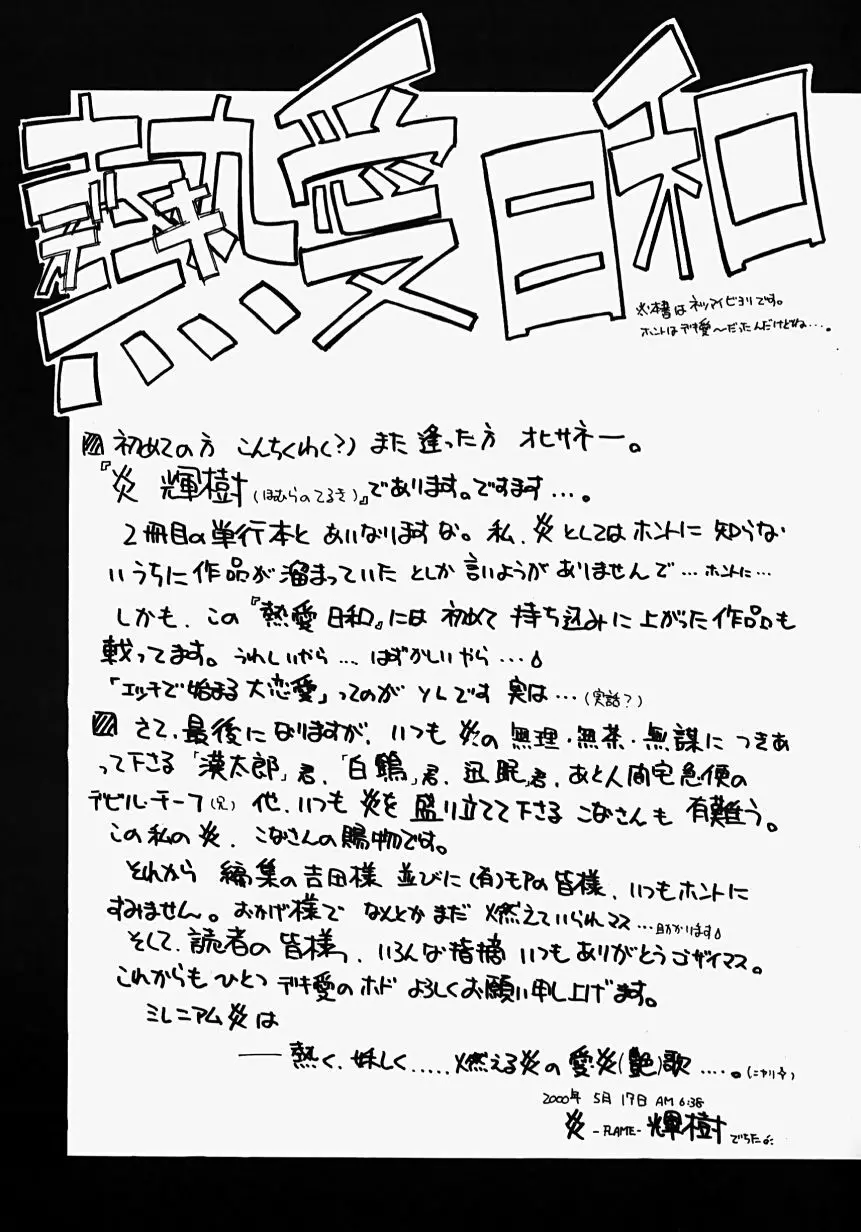 熱愛日和
デキ
※本書はネツアイビヨリです。
ホントはデキ愛〜だったんだけどね…。
初めての方 こんちくわ(?) また逢った方 オヒサネー。
『炎 輝樹(ほむらのてるき)』であります。ですます…。
2冊目の単行本と あいなりますな。私、炎としてはホントに知らな
いうちに作品が溜まっていたとしか言いようがありませんで…ホントに…
しかも、この『熱愛日和』には初めて持ち込みに上がった作品も
載ってます。うれしいやら…はずかしいやら…
「エッチで始まる大恋愛」ってのがソレです 実は…(実話?)
さて、最後になりますが、いつも炎の無理・無茶・無謀につきあ
って下さる「漢太郎」君、「白鶴」君、迅眠君、あと人間宅急便の
デビル・チーフ(兄)他、いつも炎を盛り立てて下さるこなさんも有難う。
この私の炎、こなさんの賜物です。
それから 編集の吉田様 並びに(有)モアの皆様、いつもホントに
すみません。おかげ様で なんとかまだ 燃えていられマス…助かります
そして、読者の皆様っ、いろんな指摘いつもありがとうゴザイマス。
これからもひとつ デキ愛のホド よろしくお願い申し上げます。
ミレニアム炎は
――熱く、妖しく.....燃える炎の愛炎(艶)歌…..。(ニヤリ)
2000年 5月 17日 AM 6:38
炎 -FLAME- 輝樹 でちたよ